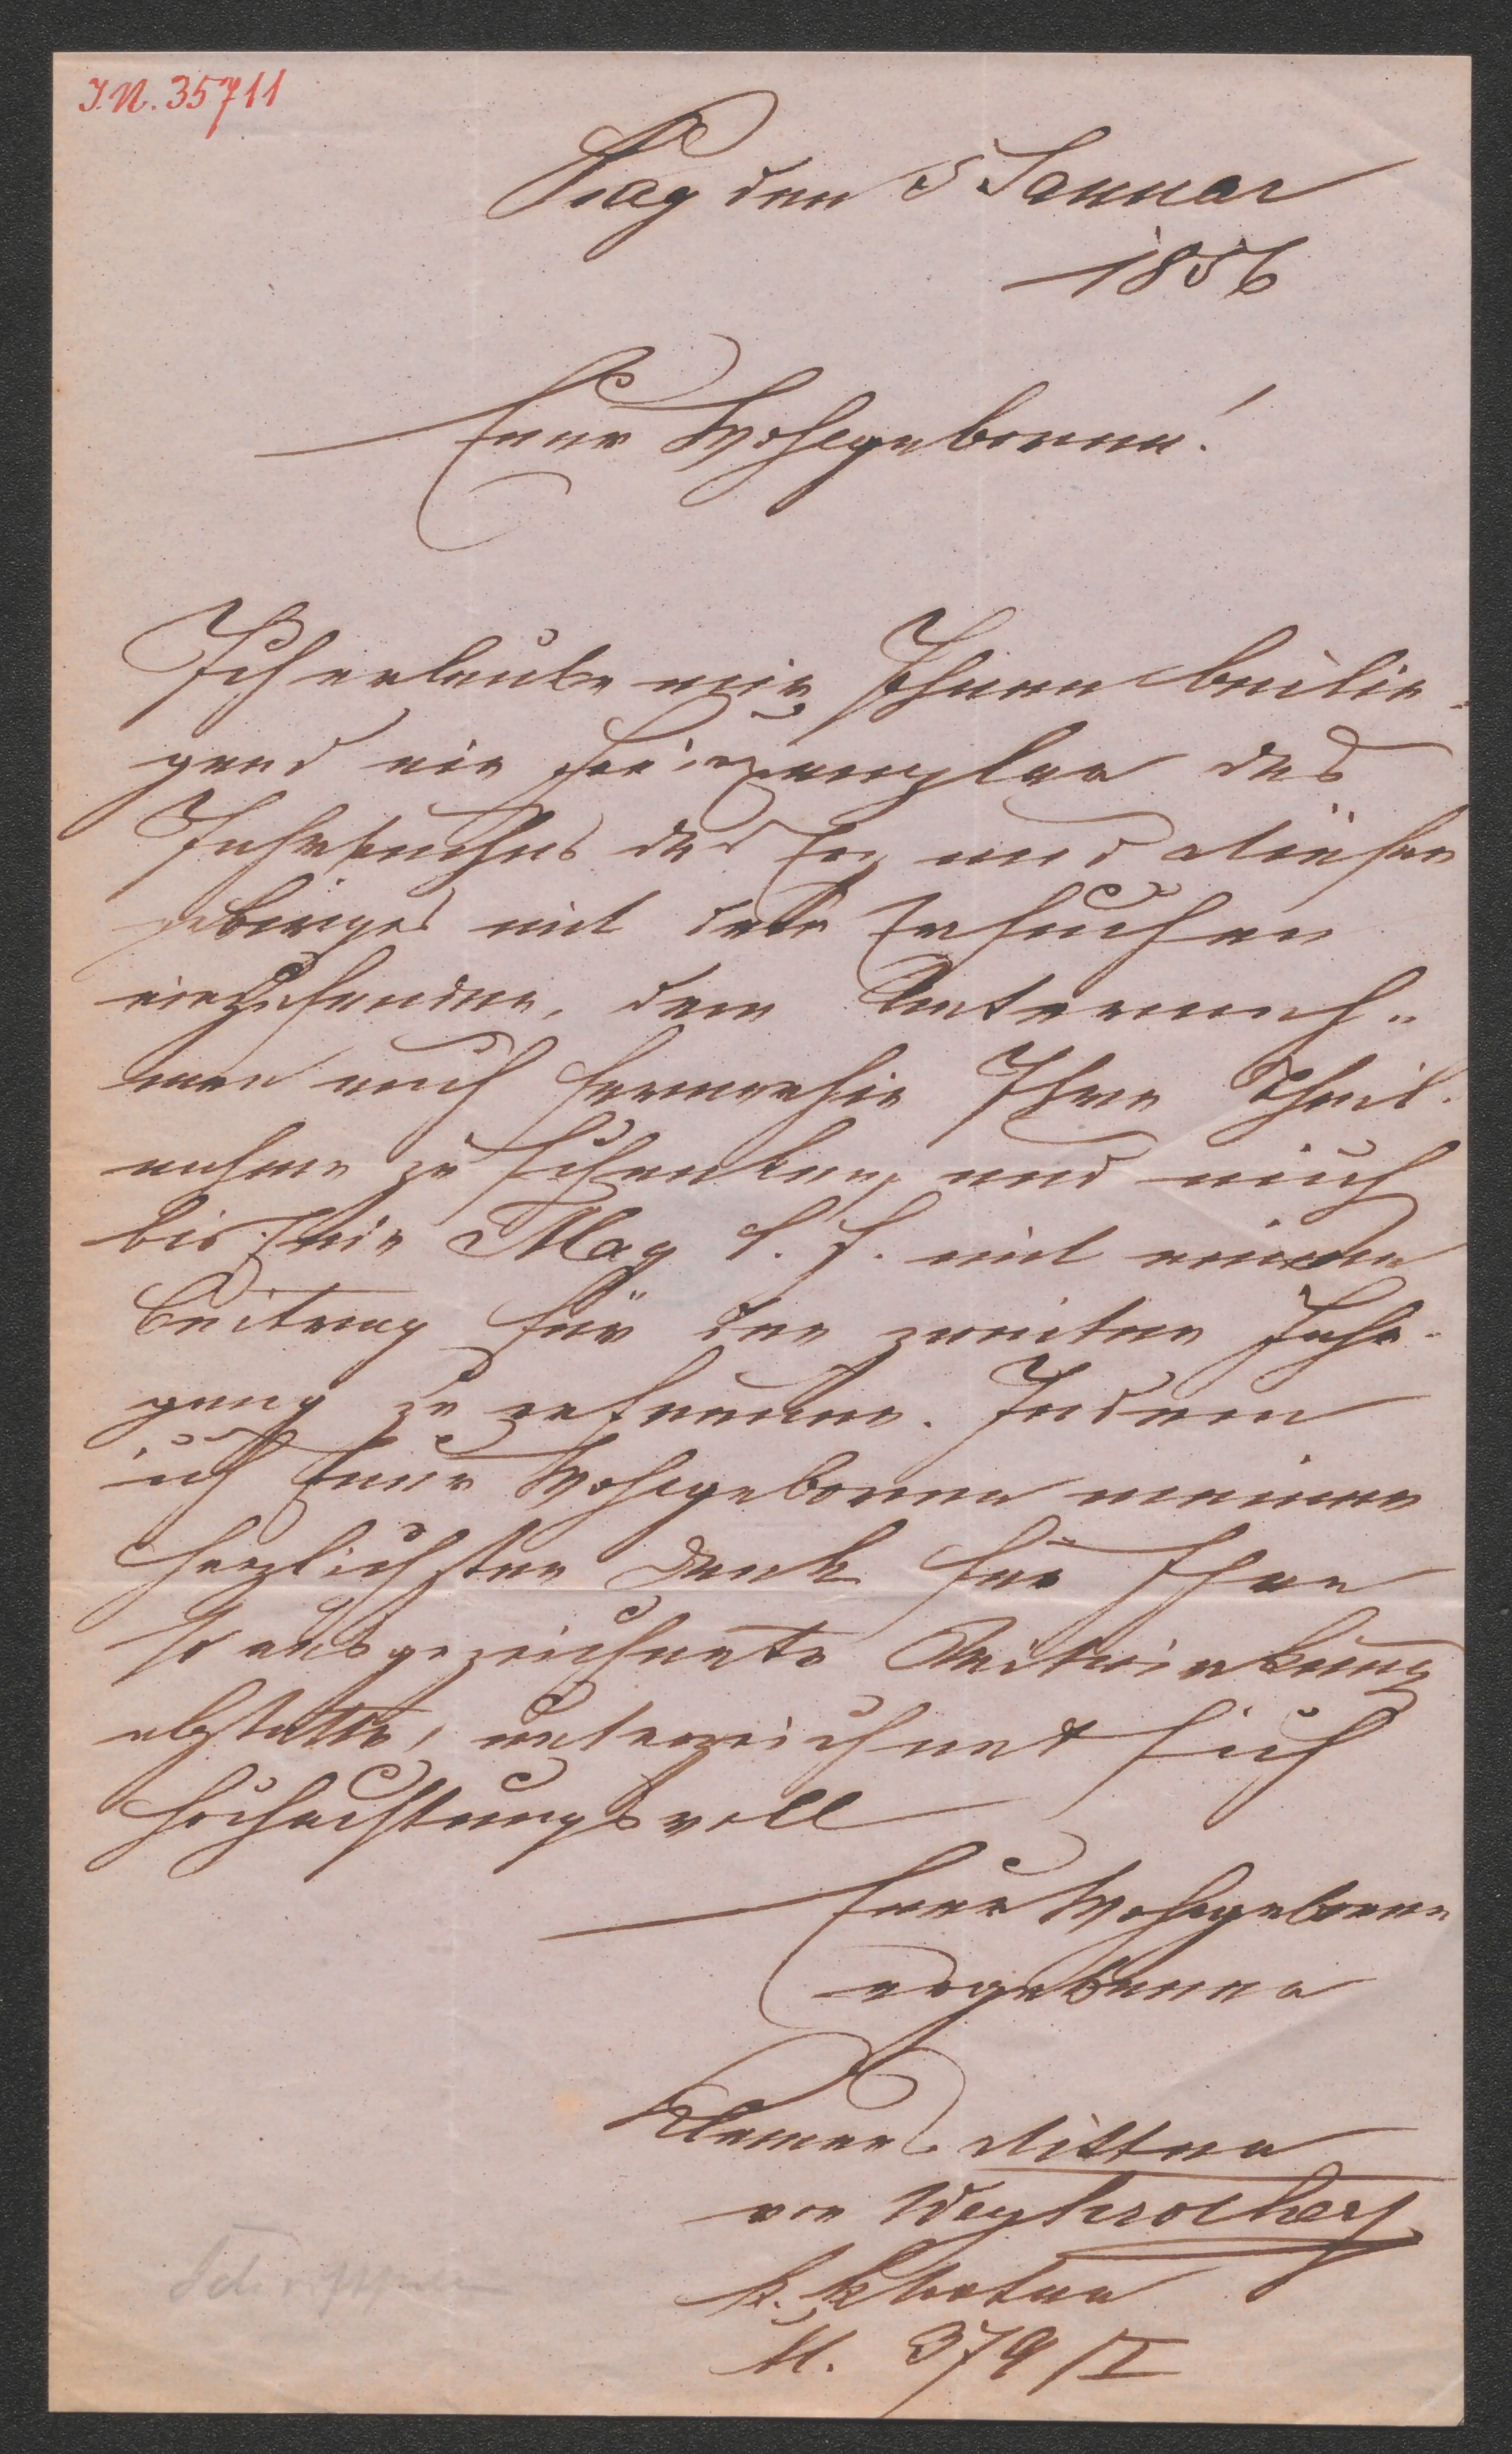 I.N. 35711
Prag den 5 Januar
1856
Euer Wohlgeboren!
Ich erlaube mir Ihnen beilie-
gend ein Freiexemplar des
Jahrbuches des Erz und Riesen
gebirges mit dem Ersuchen
einzusenden, dem Unterneh-
men auch fernerhin Ihre Theil-
nahme zu schenken, und mich
bis Ende May l. J. mit einem
Beitrag für den zweiten Jahr-
gang zu erfreuen. Indem
ich Euer Wohlgeboren meinen
herzlichsten Dank für Ihre
so ausgezeichnete Mitwirkung
abstatte, unterzeichnet sich
hochachtungsvoll
Euer Wohlgeboren
ergebener
Klemens Ritter
von Weyhrother
k. k. Beamter
N. 379/I